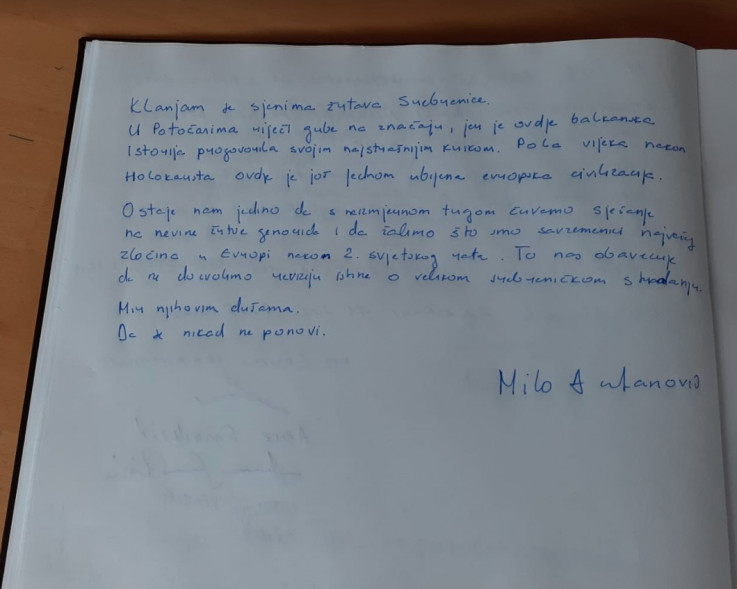 Klanjam se sjenima žrtava Srebrenice.
U Potočarima riječi gube na značaju, jer je ovdje balkanska
istorija progovorila svojim najstrašnijim krikom. Pola vijeka nakon
Holokausta ovdje je još jednom ubijena evropska civilizacija.
Ostaje nam jedino da s neizmjernom tugom čuvamo sjećanje
na nevine žrtve genocida i da žalimo što smo savremenici najvećeg
zločina u Evropi nakon 2. svjetskog rata. To nas obavezuje
da ne dozvolimo reviziju istine o velikom srebreničkom stradanju.
Mir njihovim dušama.
Da se nikad ne ponovi.
Milo